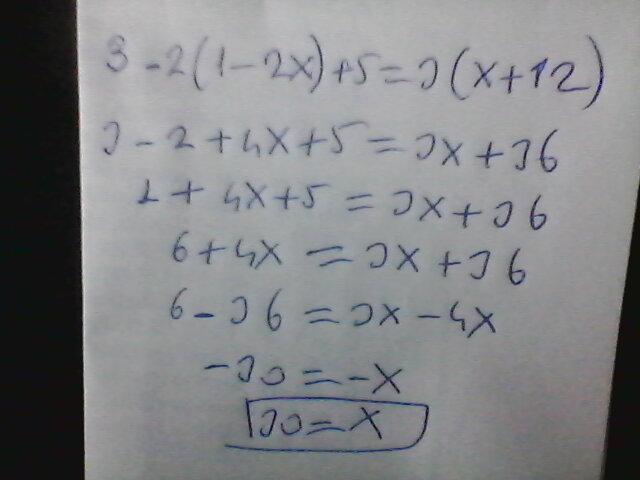 3-2(1-2x)+5=3(x+12)
3-2+4x+5=3x+36
1+4x+5=3x+36
6+4x=3x+36
6-36=3x-4x
-30=-x
30=x